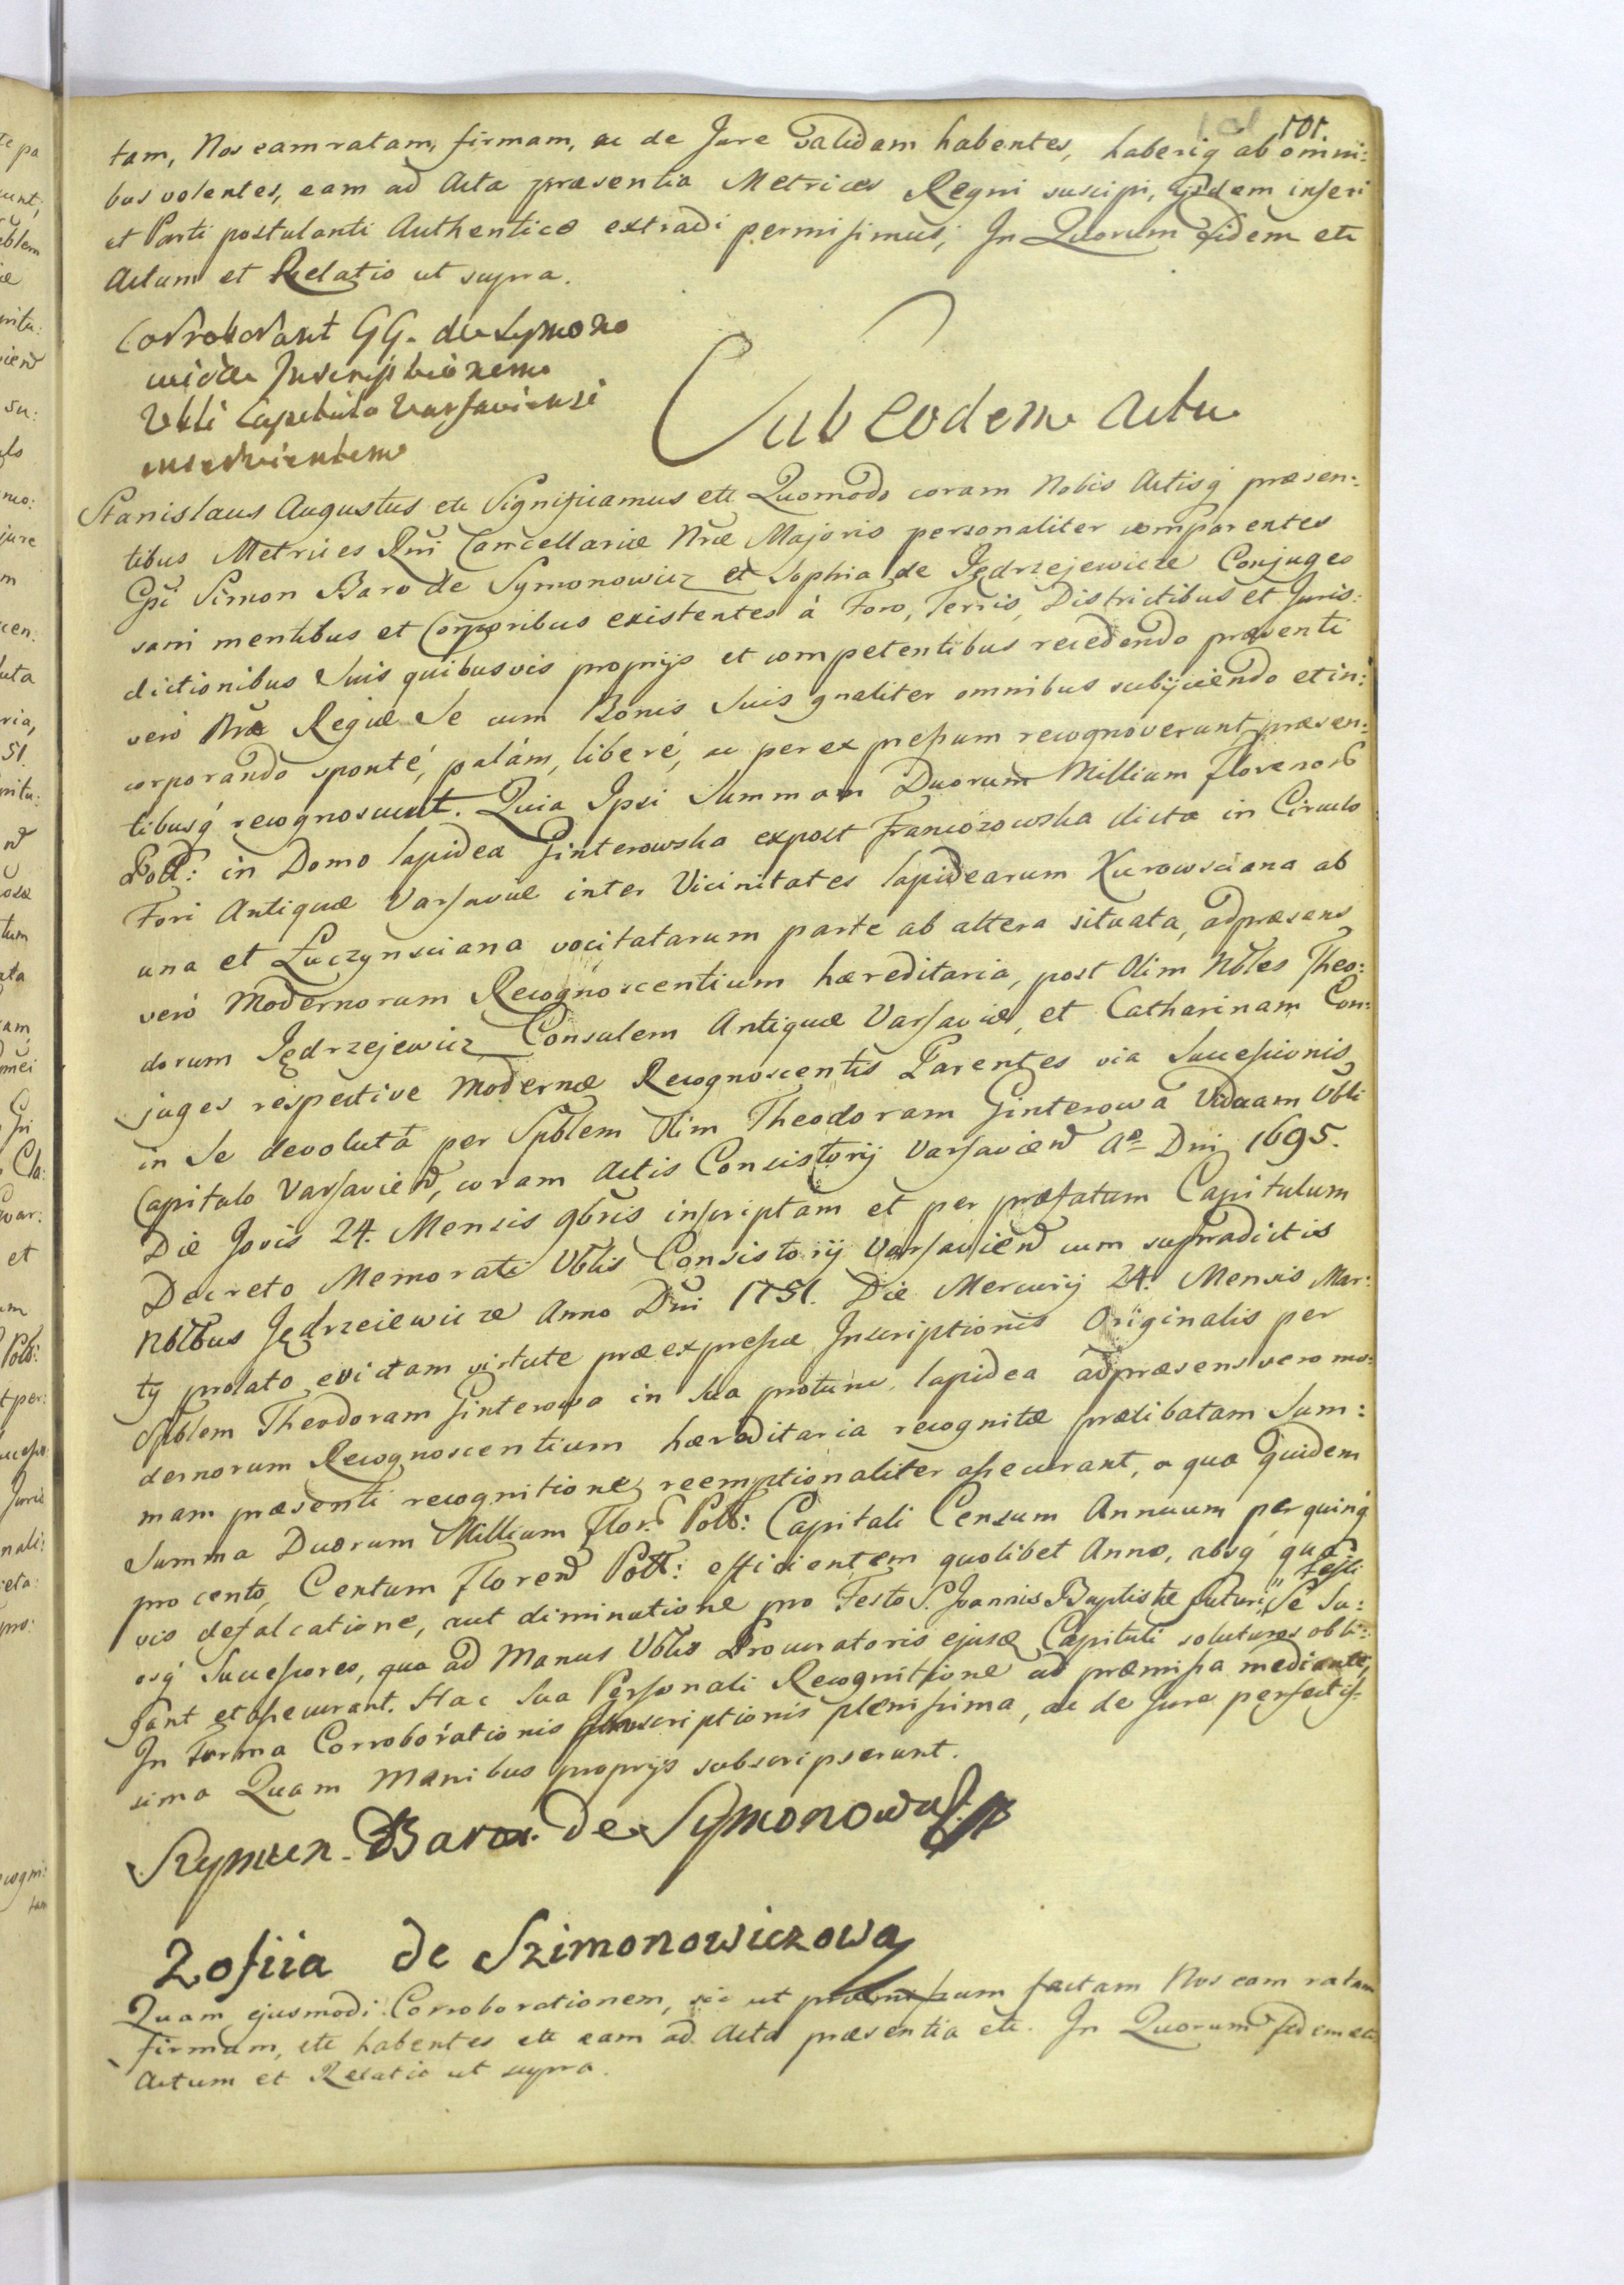 101 101.
tam, Nos eam ratam, firmam, ac de Jure Validam habentes, haberiq ab omni:
bus volentes, eam ad Acta præsentia Metrices Regni suscipi, ijsdem inseri
et Parti postulanti Authentice extradi permisimus; In Quorum fidem etc
Actum et Relatio ut supra.
Corroborant GG. de Symono
wicze Inscriptionem
Vbli Capitulo Varsaviensi
inservientem
Sub eodem Actu
Stanislaus Augustus etc Significamus ett Quomodo coram Nobis Actisq́ præsen:
tibus Metrices Rni Cancellariæ Nræ Majoris personaliter comparentes
Gsi Simon Baro de Symonowicz et Sophia de Jędrzejewicze Conjuges
sani mentibus et Corporibus existentes à Foro, Terris, Districtibus et Juris:
dictionibus Suis quibusvis proprijs et competentibus recedendo præsenti
vero Nræ Regiæ Se cum Bonis Suis gnaliter omnibus subijciendo et in:
corporando sponté, palám, liberé, ac per expressum recognoverunt, præsen:
tibusq́ recognoscunt. Quia Ipsi Summam Duorum Millium floreno
Poll: in Domo lapidea Ginterowska expost Francozowska dicta in Circulo
Fori Antiquæ Varsaviæ inter Vicinitates lapidearum Kurowsciana ab
una et Łuczynsciana vocitatarum parte ab altera situata, adpræsens
veró Modernorum Recognoscentium hæreditaria, post Olim Nbles Theo:
dorum Jędrzejewicz Consulem Antiquæ Varsaviæ, et Catharinam Con:
juges respective Modernæ Recognoscentis Parentes via Successionis
in Se devoluta per Spblem Olim Theodoram Ginterowa Viduam Vbli
Capitulo Varsavien, coram Actis Consistorij Varsavien Ao Dni 1695.
Die Jovis 24. Mensis 9bris inscriptam et per præfatum Capitulum
Decreto Memorati Vblis Consistorij Varsavien cum supradictis
Nblbus Jędrzeiewicze Anno Dni 1751. Die Mercurij 24. Mensis Mar:
tij prolato evictam virtute præexpressæ Inscriptionis Originalis per
Spblem Theodoram Ginterowa in Sua protunc lapidea adpræsens vero mo:
dernorum Recognoscentium hæreditaria recognitæ prælibatam Sum:
mam præsenti recognitione reemptionaliter assecurant, a qua quidem
Summa Duorum Millium Flor. Poll: Capitali Censum Annuum per quinq́
pro cento, Centum Floren Poll: efficientem quolibet Anno, absq́ qua
vis defalcatione, aut diminutione pro Festo S. Joannis Baptistæ futuri" Festi Se Su:
osq́ Successores, qua ad Manus Vblis Procuratoris ejusd Capituli soluturos obli:
gant et assecurant. Hac Sua Personali Recognitione ad præmissa mediante,
In Forma Corroborationis Inscriptionis plenissima, ac de Jure perfectis
sima Quam Manibus proprijs subscripserunt.
Szymon Baron de Symonowicz
Zofiia de Szimonowiczowa
Quam ejusmodi Corroborationem, sic ut præmissum factam Nos eam ratam
firmam, etc habentes etc eam ad Acta præsentia etc. In Quorum fidem etc
Actum et Relatio ut supra.